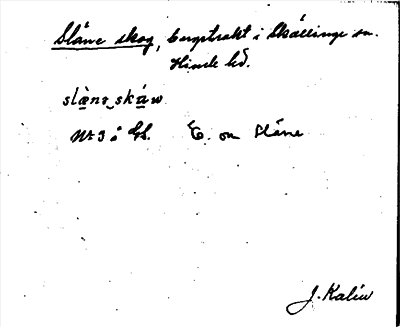 Slåne skog, bergstrakt i Skällinge sn.
Himle hd.
slànə skáw
Nr 3 å Gk. E. om Slåne
J. Kalén